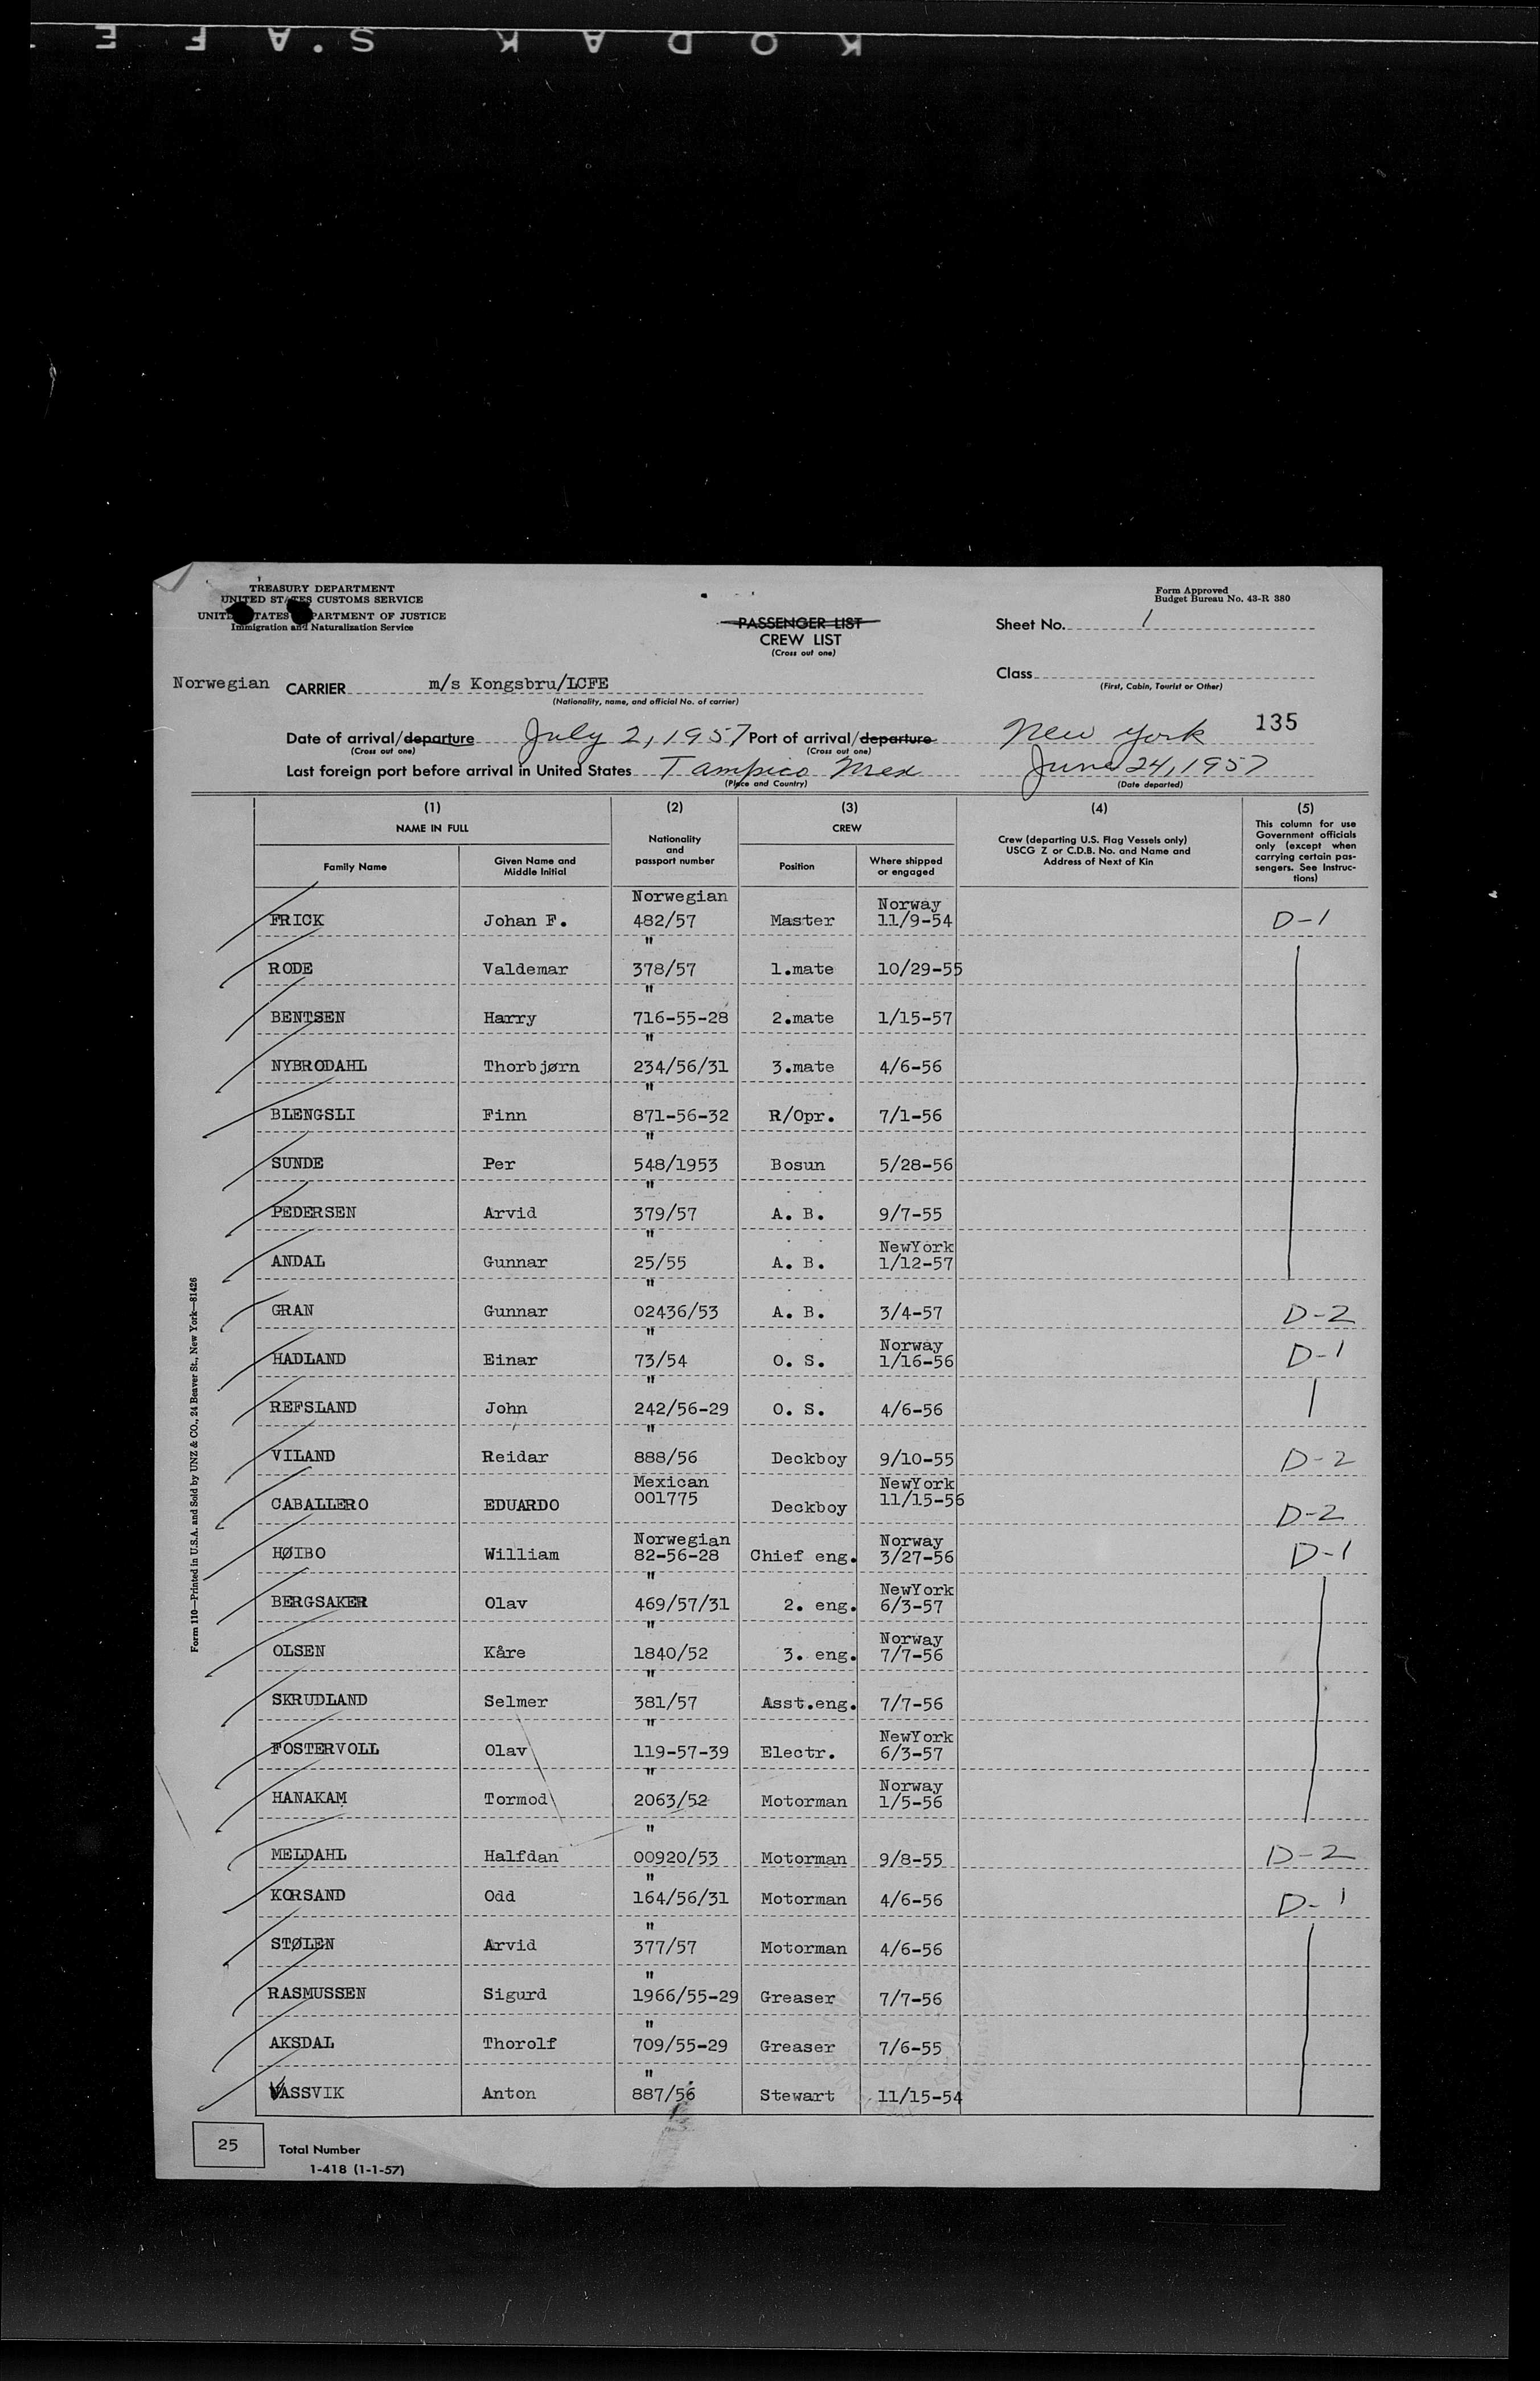 KODAK S.AFE
TREASURY DEPARTMENT
UNITED STATES CUSTOMS SERVICE
DEPARTMENT OF JUSTICE
Immigration and Naturalization Service
Form Approved
Budget Bureau No. 43-R 380
PASSENGER LIST
CREW LIST
(Cross out one)
Sheet No. 1
Norwegian CARRIER m/s Kongsbru/LCFE
(Nationality, name, and official No. of carrier)
Class
(First, Cabin, Tourist or Other)
135
Date of arrival/departure July 2, 1957 Port of arrival/departure New York
(Cross out one) (Cross out one)
Last foreign port before arrival in United States Tampico Mex June 24, 1957
(Place and Country) (Date departed)
(1) (2) (3) (4) (5)
NAME IN FULL
Family Name
Given Name and Middle Initial
Nationality and passport number
CREW
Position
Where shipped or engaged
Crew (departing U.S. Flag Vessels only) USCG Z or C.D.B. No. and Name and Address of Next of Kin
This column for use Government officials only (except when carrying certain passengers. See Instructions)
Norwegian Norway
FRICK Johan F. 482/57 Master 11/9-54 D-1
"
RODE Valdemar 378/57 1.mate 10/29-55
"
BENTSEN Harry 716-55-28 2.mate 1/15-57
"
NYBRODAHL Thorbjørn 234/56/31 3.mate 4/6-56
"
BLENGSLI Finn 871-56-32 R/Opr. 7/1-56
"
SUNDE Per 548/1953 Bosun 5/28-56
"
PEDERSEN Arvid 379/57 A. B. 9/7-55
" NewYork
ANDAL Gunnar 25/55 A. B. 1/12-57
"
GRAN Gunnar 02436/53 A. B. 3/4-57 D-2
" Norway
HADLAND Einar 73/54 O. S. 1/16-56 D-1
"
REFSLAND John 242/56-29 O. S. 4/6-56
"
VILAND Reidar 888/56 Deckboy 9/10-55 D-2
Mexican NewYork
CABALLERO EDUARDO 001775 Deckboy 11/15-56 D-2
Norwegian Norway
HØIBO William 82-56-28 Chief eng. 3/27-56 D-1
" NewYork
BERGSAKER Olav 469/57/31 2. eng. 6/3-57
" Norway
OLSEN Kåre 1840/52 3. eng. 7/7-56
"
SKRUDLAND Selmer 381/57 Asst.eng. 7/7-56
" NewYork
FOSTERVOLL Olav 119-57-39 Electr. 6/3-57
" Norway
HANAKAM Tormod 2063/52 Motorman 1/5-56
"
MELDAHL Halfdan 00920/53 Motorman 9/8-55 D-2
"
KORSAND Odd 164/56/31 Motorman 4/6-56 D-1
"
STØLEN Arvid 377/57 Motorman 4/6-56
"
RASMUSSEN Sigurd 1966/55-29 Greaser 7/7-56
"
AKSDAL Thorolf 709/55-29 Greaser 7/6-55
"
VASSVIK Anton 887/56 Stewart 11/15-54
25 Total Number
1-418 (1-1-57)
Form 110—Printed in U.S.A. and Sold by UNZ & CO., 24 Beaver St., New York—81426